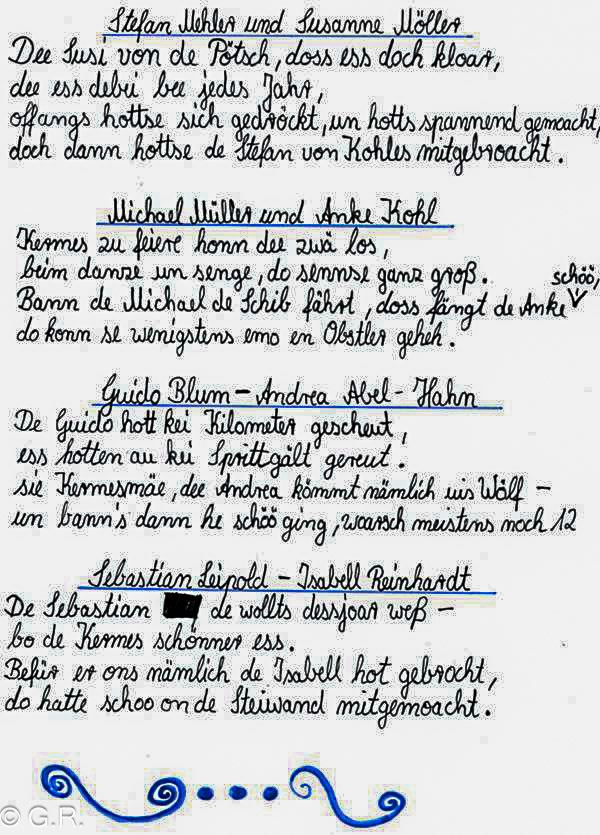 Stefan Mehler und Susanne Möller
Dee Susi von de Pötsch, doss ess doch kloar,
dee ess debei bee jedes Jahr,
offangs hottse sich gedröckt, un hotts spannend gemoacht,
doch dann hottse de Stefan von Kohles mitgebroacht.
Michael Müller und Anke Kohl
Kermes zu feiere honn dee zwä los,
beim danze un senge, do sennse ganz groß.
schöö,
Bann de Michael de Schib fährt, doss fängt de Anke
do konn se wenigstens emo en Obstler geheh.
Guido Blum - Andrea Abel - Hahn
De Guido hott kei Kilometer gescheut,
ess hotten au kei Sprittgält gereut.
sie Kermesmäe, dee Andrea kömmt nämlich uis Wölf -
un bann's dann he schöö ging, woarsch meistens noch 12
Sebastian Leipold - Isabell Reinhardt
De Sebastian de wollts dessjoar weß -
bo de Kermes schönner ess.
Befür er ons nämlich de Isabell hot gebrocht,
do hatte schoo on de Steiwand mitgemoacht.
© G.R.